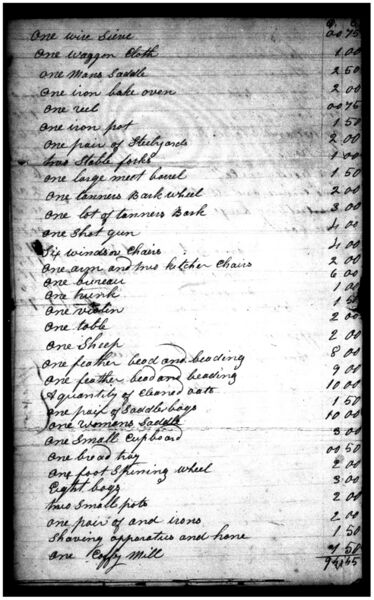 D. C.
One wire Sieve 00 75
One waggon Cloth 1.00
One Mans Saddle 2 50
One iron bake oven 2 00
One reel 00 75
One iron pot 1 50
One pair of Steelyards 2 00
two Stable forks 1 00
One large meet barel 1 50
One tanners Bark wheel 2 00
One lot of tanners Bark 3 00
One Shot gun 4 00
Six windsor Chairs 4 00
One arm and two kitcher Chairs 2 00
One bureau 6 00
One trunk 1 00
One violin 1 50
One table 2 00
One Sheep 2 00
One feather bead and beading 8 00
One feather bead and beading 9 00
A quantity of cleaned oats 10 00
One pair of Saddle bags 1 50
One womans Saddle 10 00
One Small Cupboard 3 00
One bread tray 00 50
One foot Spinning wheel 2 00
Eight bags 3 00
two Small pots 2 00
One pair of and irons 2 00
Shaving apparatus and hone 1 50
One Coffy Mill 1 50